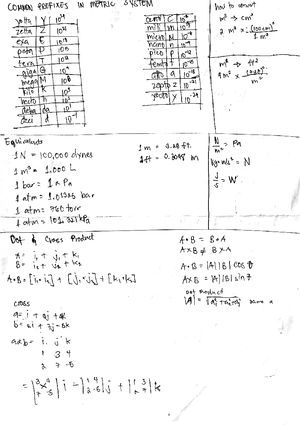 COMMON PREFIXES IN METRIC SYSTEM
yotta Y 10²⁴
zetta Z 10²¹
exa E 10¹⁸
peta P 10¹⁵
tera T 10¹²
giga G 10⁹
mega M 10⁶
kilo K 10³
hecto h 10²
deka da 10¹
deci d 10⁻¹
centi C 10⁻²
mili m 10⁻³
micro M 10⁻⁶
nano n 10⁻⁹
pico p 10⁻¹²
femto f 10⁻¹⁵
atto a 10⁻¹⁸
zepto z 10⁻²¹
yocto y 10⁻²⁴
how to convert
m³ → cm³
2 m³ × (100cm)³
1 m³
m² → ft²
Equivalents
1 N = 100,000 dynes
1 m³ = 1,000 L
1 atm = 1.01325 bar
1 atm = 760 torr
1 atm = 101.325 kPa
1 m = 3.28 ft.
1 ft = 0.3048 m
N/m² = Pa
kg·m/s² = N
J/s = W
Dot & Cross Product
A = i₁ + j₁ + k₁
B = i₂ + j₂ + k₂
A•B = [i₁•i₂] + [j₁•j₂] + [k₁•k₂]
A•B = B•A
A×B ≠ B×A
A•B = |A||B| cos θ
A×B = |A||B| sin θ
dot product
cross
a×b = i j k
1 3 4
2 7 -5